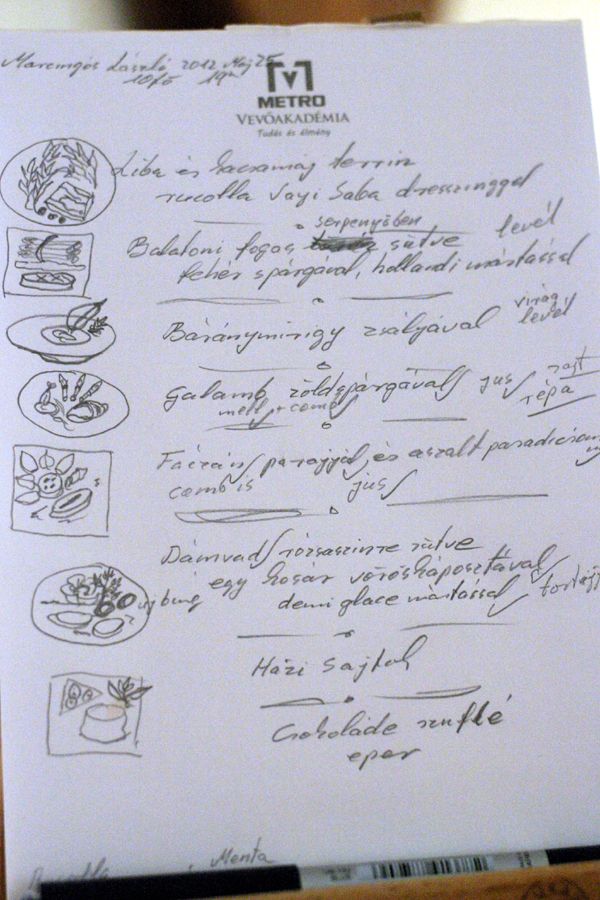 Marcingós László 2012 Maj 25
10fő 19ʰ
METRO
VEVŐAKADÉMIA
Tudás és élmény
Liba és terrin
rucolla dresszinggel
serpenyőben
Balatoni fogas sütve levél
fehér spárgával, hollandi mártással
Báránymirigy zsályával virág
levél
Galamb zöldspárgával jus
mell + comb répa
Fácán parajjal és aszalt paradicsom
comb is jus
Dámvad rózsaszínre sütve
egy kosár vöröskáposztával
demi glace mártással
Házi Sajtok
Csokoládé szuflé
eper
Menta